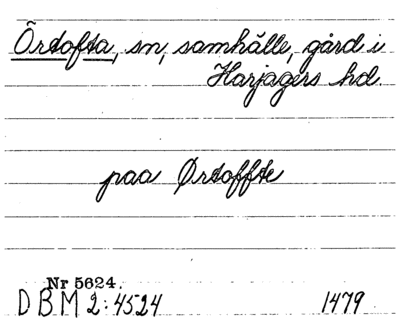 Örtofta, sn, samhälle, gård i
Harjagers hd.
paa Ørtoffte
Nr 5624.
DBM 2:4524 1479